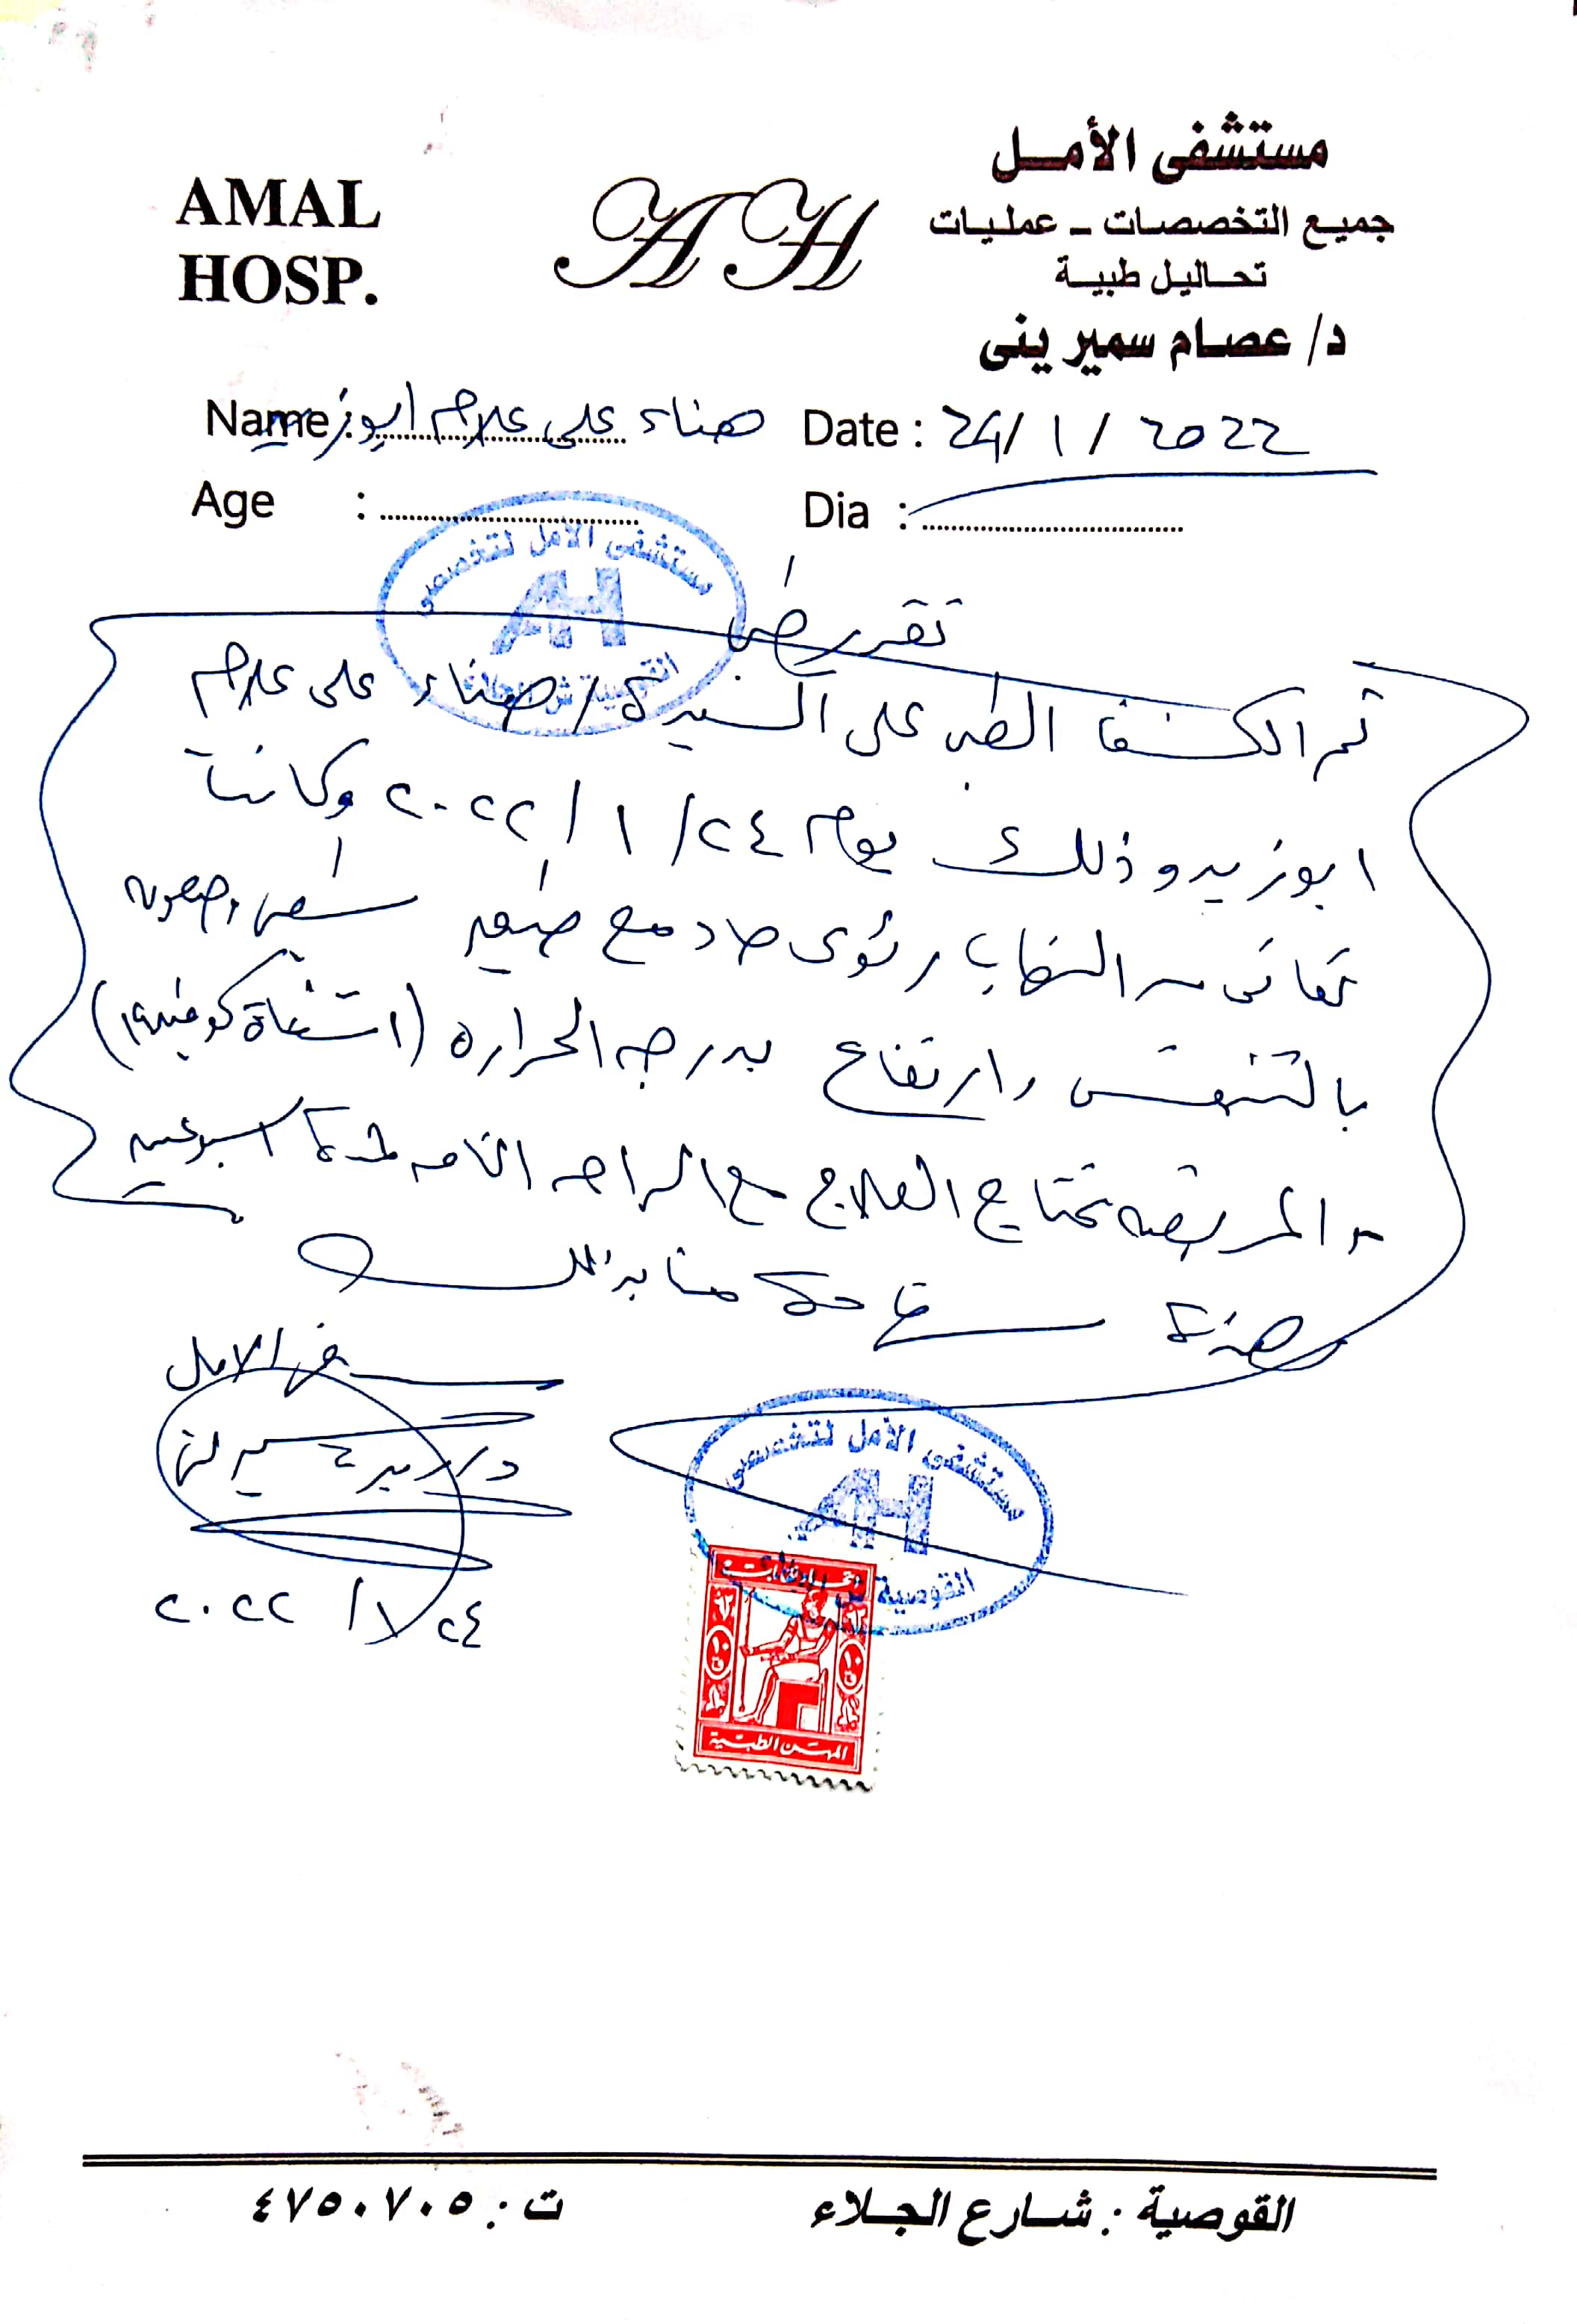 مستشفى الأمل
جميع التخصصات - عمليات
تحاليل طبية
د/ عصام سمير ينى
AMAL
HOSP.
AH
Name : هناء على علام ابوزيد
Date : 24/1/2022
Age :
Dia :
مستشفى الأمل لتخصصى
AH
القوصية ش الجلاء
تقرير طبى
تم الكشف الطبى على السيدة / هناء على علام
ابوزيد وذلك يوم ٢٤/١/٢٠٢٢ وكانت
تعانى من التهاب رئوى حاد مع صفير وصعوبه
بالتنفس وارتفاع بدرجه الحراره (اشتباة كوفيد ١٩)
والمريضه تحتاج العلاج مع الراحه التامه لمدة اسبوعين
وهذة شهادة منا بذلك
مستشفى الامل
د/
٢٤/١/٢٠٢٢
مستشفى الأمل لتخصصى
AH
القوصية ش الجلاء
١٠
١٠
المهن الطبية
القوصية : شارع الجلاء
ت : ٤٧٥٠٧٠٥